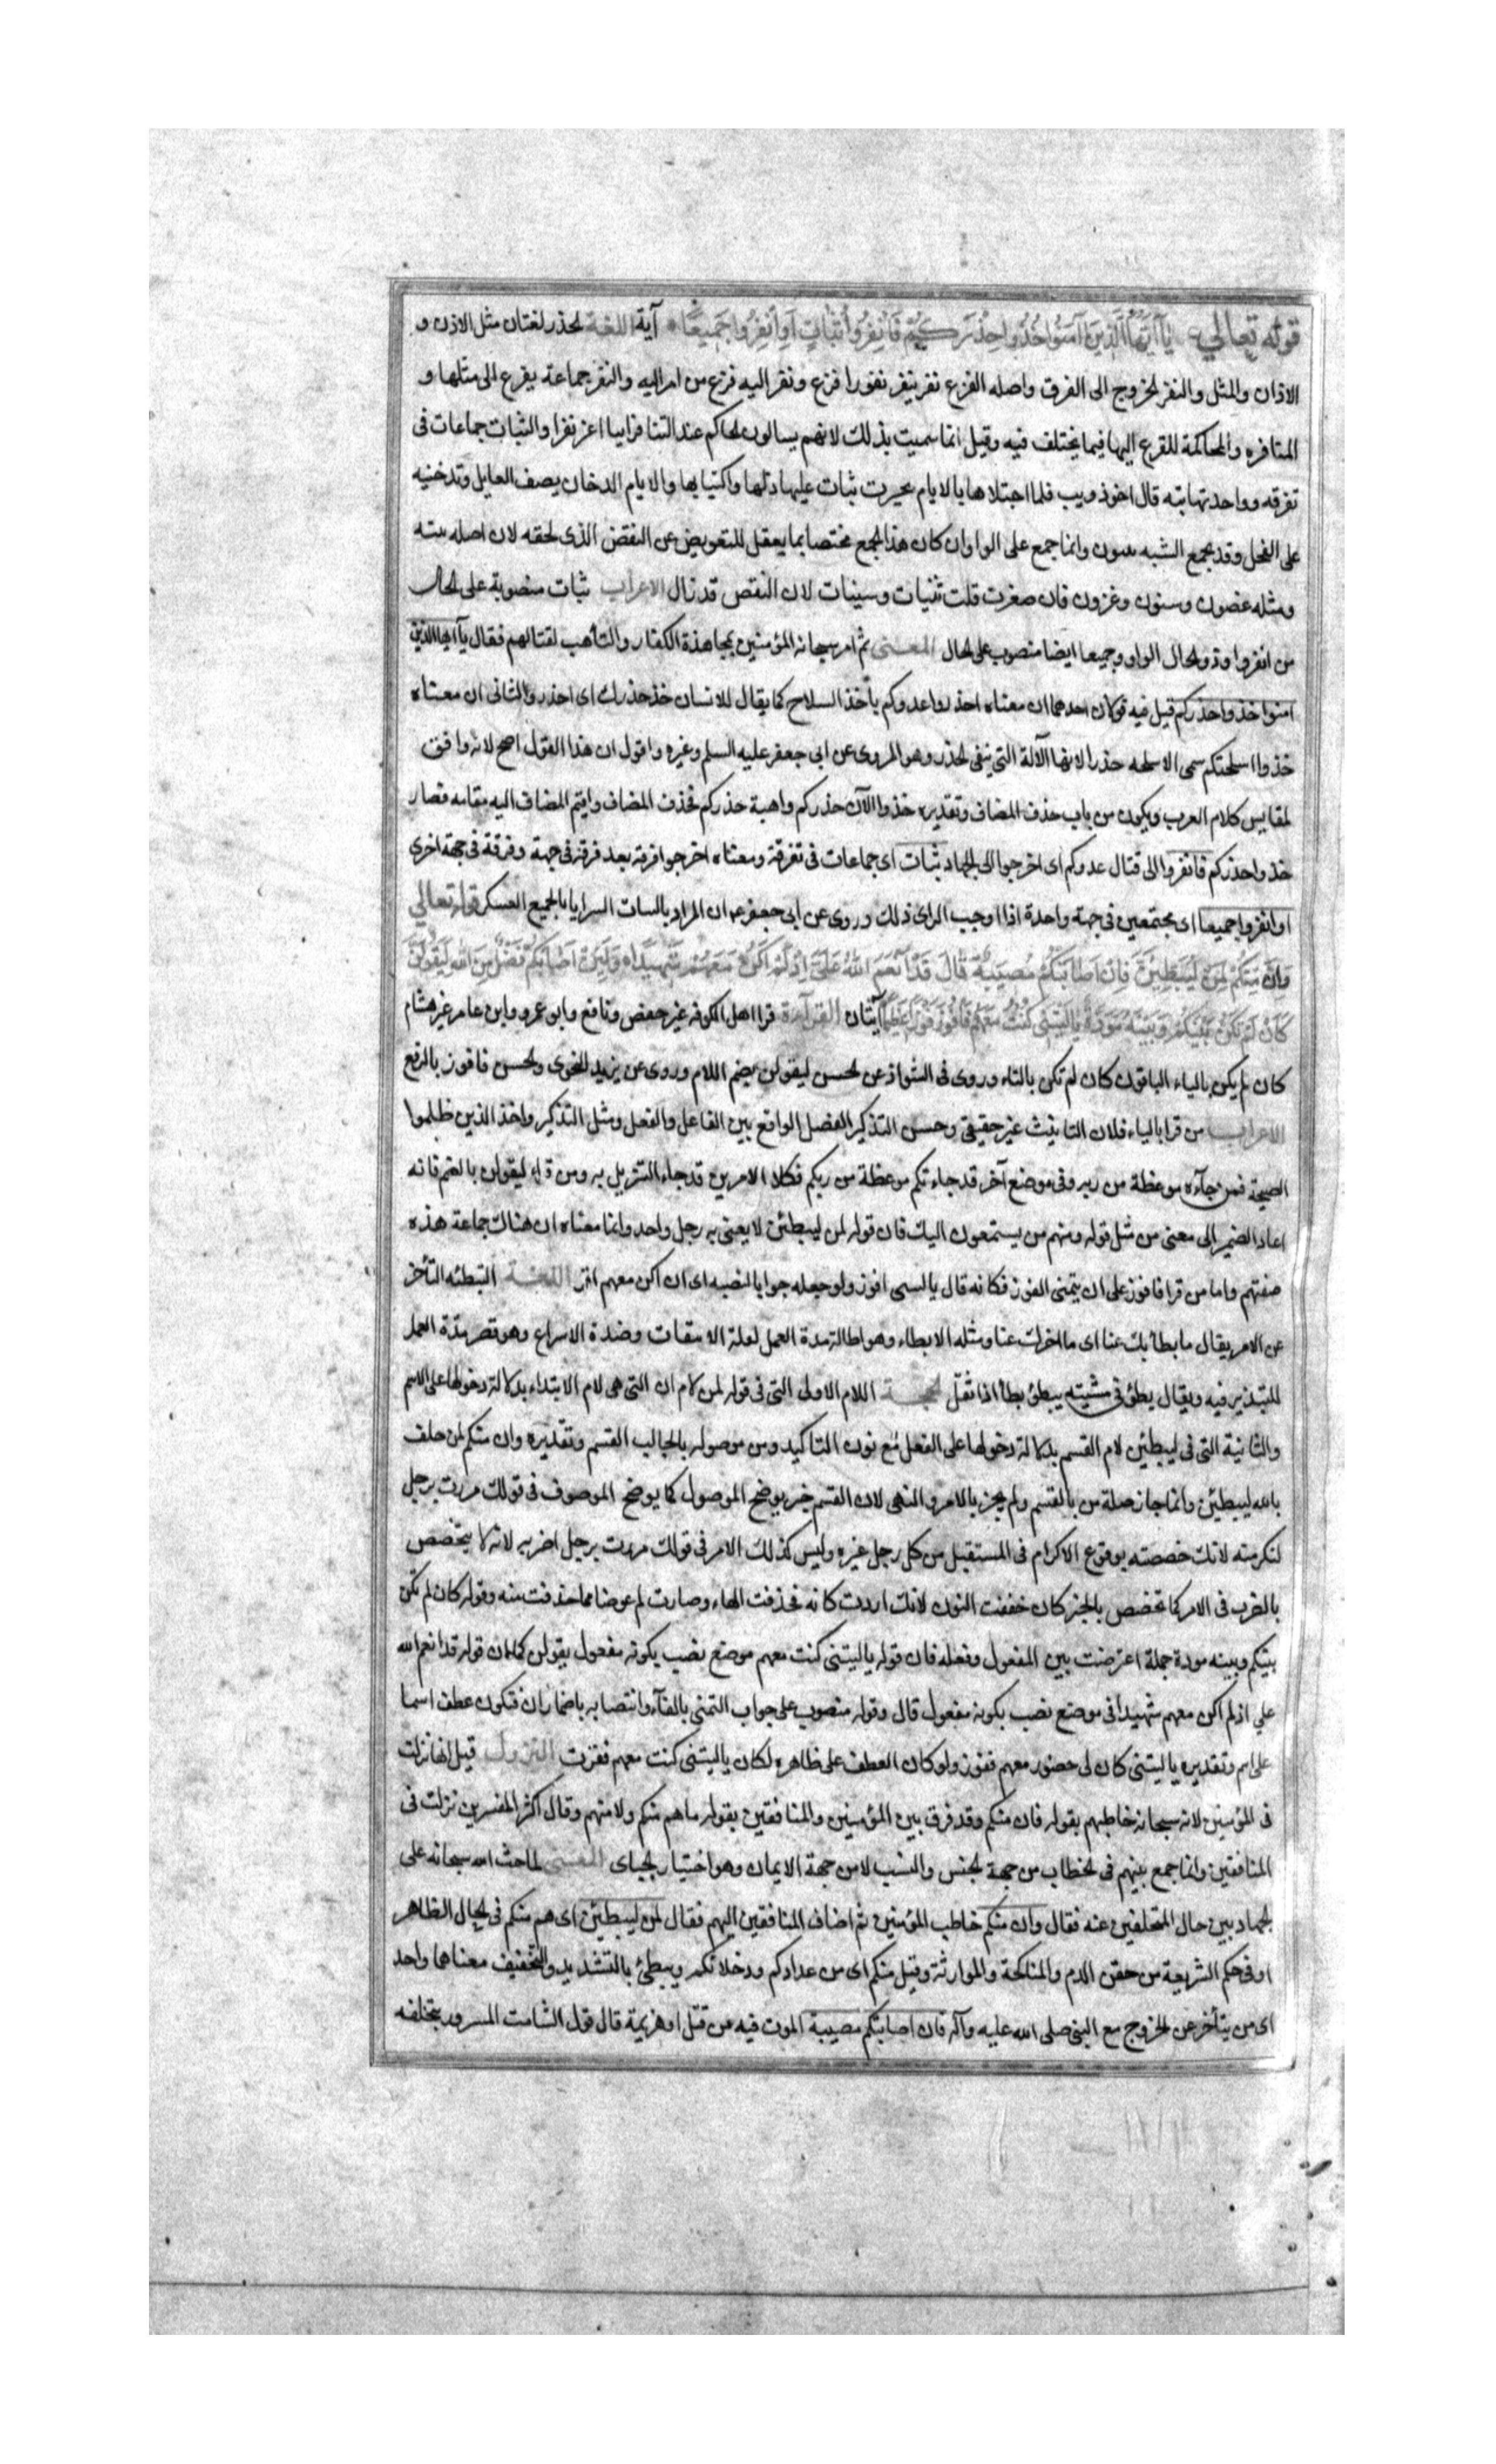 قوله تعالى يا أيها الذين آمنوا خذوا حذركم فانفروا ثبات او انفروا جميعا آية اللغة الحذر لغتان مثل الاذن و
الاذان والمثل والنفر الخروج الى الفرق واصله الفزع نفر ينفر نفورا فزع ونفر اليه فزع من امر اليه والنفر جماعة يفزع الى مثلها و
المنافره والمحاكمة للفزع اليها فيما يختلف فيه وقيل انما سميت بذلك لانهم يسالون الحاكم عند التنافر اينا اعز نفرا والثبات جماعات فى
تفرقه وواحدتها ثبة قال اخوذويب فلما اجتلاها بالايام تحيرت ثبات عليها ذلها واكتيابها والايام الدخان يصف العايل وتدخنيه
على النحل وقد يجمع الثبه ثبون وانما جمع على الواو ان كان هذا الجمع مختصا بما يعقل للتعويض عن النقض الذى لحقه لان اصله ثبيه
ومثله عضون وسنون وغزون فان صغرت قلت ثنيات وسينات لان النقص قد زال الاعراب ثبات منصوبة على الحال
من انفروا وذو الحال الواو وجميعا ايضا منصوب على الحال المعنى ثم امر سبحانه المؤمنين بمجاهدة الكفار والتأهب لقتالهم فقال يآ ايها الذين
امنوا خذوا حذركم قيل فيه قولان احدهما ان معناه احذروا عدوكم بأخذ السلاح كما يقال للانسان خذ حذرك اى احذر والثانى ان معناه
خذوا اسلحتكم سمى الاسلحه حذرا لانها الآلة التى يتقى الحذر وهو المروى عن ابى جعفر عليه السلم وغيره واقول ان هذا القول اصح لانه وافق
لمقاييس كلام العرب ويكون من باب حذف المضاف وتقديره خذوا الآت حذركم واهبة حذركم فحذف المضاف واقيم المضاف اليه مقامه فصار
خذوا حذركم فانفروا الى قتال عدوكم اى اخرجوا الى الجهاد ثبات اى جماعات فى تفرقة ومعناه اخرجوا فرقة بعد فرقة فى جهة وفرقة فى جهة اخرى
او انفروا جميعا اى مجتمعين فى جهة واحدة اذا اوجب الراى ذلك وروى عن ابى جعفر ع ان المراد بالثبات السرايا بالجميع العسكر قوله تعالى
وان منكم لمن ليبطئن فان اصابتكم مصيبة قال قد انعم الله على اذ لم اكن معهم شهيدا ولئن اصابكم فضل من الله ليقولن
كان لم تكن بينكم وبينه مودة يا ليتنى كنت معهم فافوز فوزا عظيما آيتان القرآءة قرا اهل الكوفه غير حفص ونافع وابو عمرو وابن عامر غير هشام
كان لم يكن بالياء الباقون كان لم تكن بالتاء وروى فى الشواذ عن الحسن ليقولن بضم اللام وروى عن يزيد النحوى والحسن فافوز بالرفع
الاعراب من قرا بالياء فلان التانيث غير حقيقى وحسن التذكير الفصل الواقع بين الفاعل والفعل ومثل التذكير واخذ الذين ظلموا
الصيحة فمن جآءه موعظة من ربه وفى موضع آخر قد جاءتكم موعظة من ربكم فكلا الامرين قد جاء التنزيل به ومن قراء ليقولن بالضم فانه
اعاد الضمير الى معنى من مثل قوله ومنهم من يستمعون اليك فان قوله لمن ليبطئن لا يعنى به رجل واحد وانما معناه ان هناك جماعة هذه
صفتهم واما من قرا فافوز على ان يتمنى الفوز فكانه قال يا ليتنى افوز ولو جعله جوابا لنصبه اى ان اكن معهم افز اللغة التبطئه التأخر
عن الامر يقال ما بطأ بك عنا اى ما اخرك عنا ومثله الابطاء وهو اطالة مدة العمل لعلة الانبعاث وضده الاسراع وهو قصر مدة العمل
للتدبير فيه ويقال بطؤ فى مشيته يبطؤ بطأ اذا ثقل الحجة اللام الاولى التى فى قوله لمن لام ان التى هى لام الابتداء بدلالة دخولها على الاسم
والثانية التى فى ليبطئن لام القسم بدلالة دخولها على الفعل مع نون التاكيد ومن موصوله بالجالب القسم وتقديره وان منكم لمن حلف
بالله ليبطئن وانما جاز صلة من بالقسم ولم يجز بالامر والنهى لان القسم خبر يوضح الموصول كما يوضح الموصوف فى قولك مررت برجل
لتكرمنه لانك خصصته بوقوع الاكرام فى المستقبل من كل رجل غيره وليس كذلك الامر فى قولك مررت برجل اضربه لانه لا يتخصص
بالضرب فى الامر كما تخصص بالخبر كان خففت النون لانك اردت كانه فحذفت الهاء وصارت لم عوضا مما حذفت منه وقوله كان لم تكن
بينكم وبينه مودة جملة اعترضت بين المفعول وفعله فان قوله يا ليتنى كنت معهم موضع نصب بكونه مفعول يقولن كما ان قوله قد انعم الله
على اذ لم اكن معهم شهيدا فى موضع نصب بكونه مفعول قال وقوله منصوب على جواب التمنى بالفآء وانتصابه باضمار ان فتكون عطف اسما
على اسم وتقديره يا ليتنى كان لى حضور معهم ففوز ولو كان العطف على ظاهره لكان يا ليتنى كنت معهم ففزت النزول قيل انها نزلت
فى المؤمنين لانه سبحانه خاطبهم بقوله فان منكم وقد فرق بين المؤمنين والمنافقين بقوله ما هم منكم ولا منهم وقال اكثر المفسرين نزلت فى
المنافقين وانما جمع بينهم فى الخطاب من جهة الجنس والنسب لا من جهة الايمان وهو اختيار الجبائى المعنى لما حث الله سبحانه على
الجهاد بين حال المتخلفين عنه فقال وان منكم خاطب المؤمنين ثم اضاف المنافقين اليهم فقال لمن ليبطئن اى هم منكم فى الحال الظاهر
او فى حكم الشريعة من حقن الدم والمناكحة والموارثة وقيل منكم اى من عدادكم ودخلائكم ويبطئ بالتشديد والتخفيف معناهما واحد
اى من يتأخر عن الخروج مع النبى صلى الله عليه وآله فان اصابتكم مصيبة الموت فيه من قتل او هزيمة قال قول الشامت المسرور بتخلفه